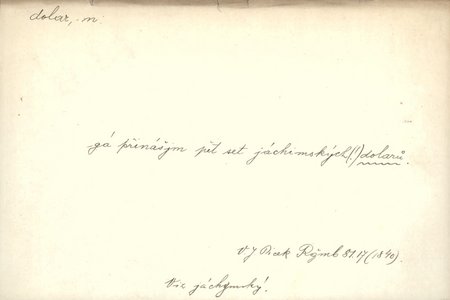 dolar, m.
gá přinášjm pět set jáchimských(!) dolarů.
V J Picek Rýmb 81.17 (1840).
Viz jáchymský!